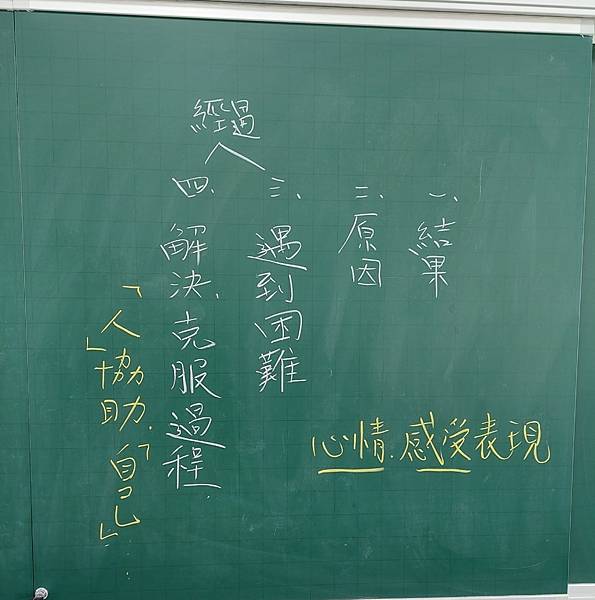 經過
一、結果
二、原因
三、遇到困難
四、解決、克服過程
「人」協助、「自己」……
心情、感受表現